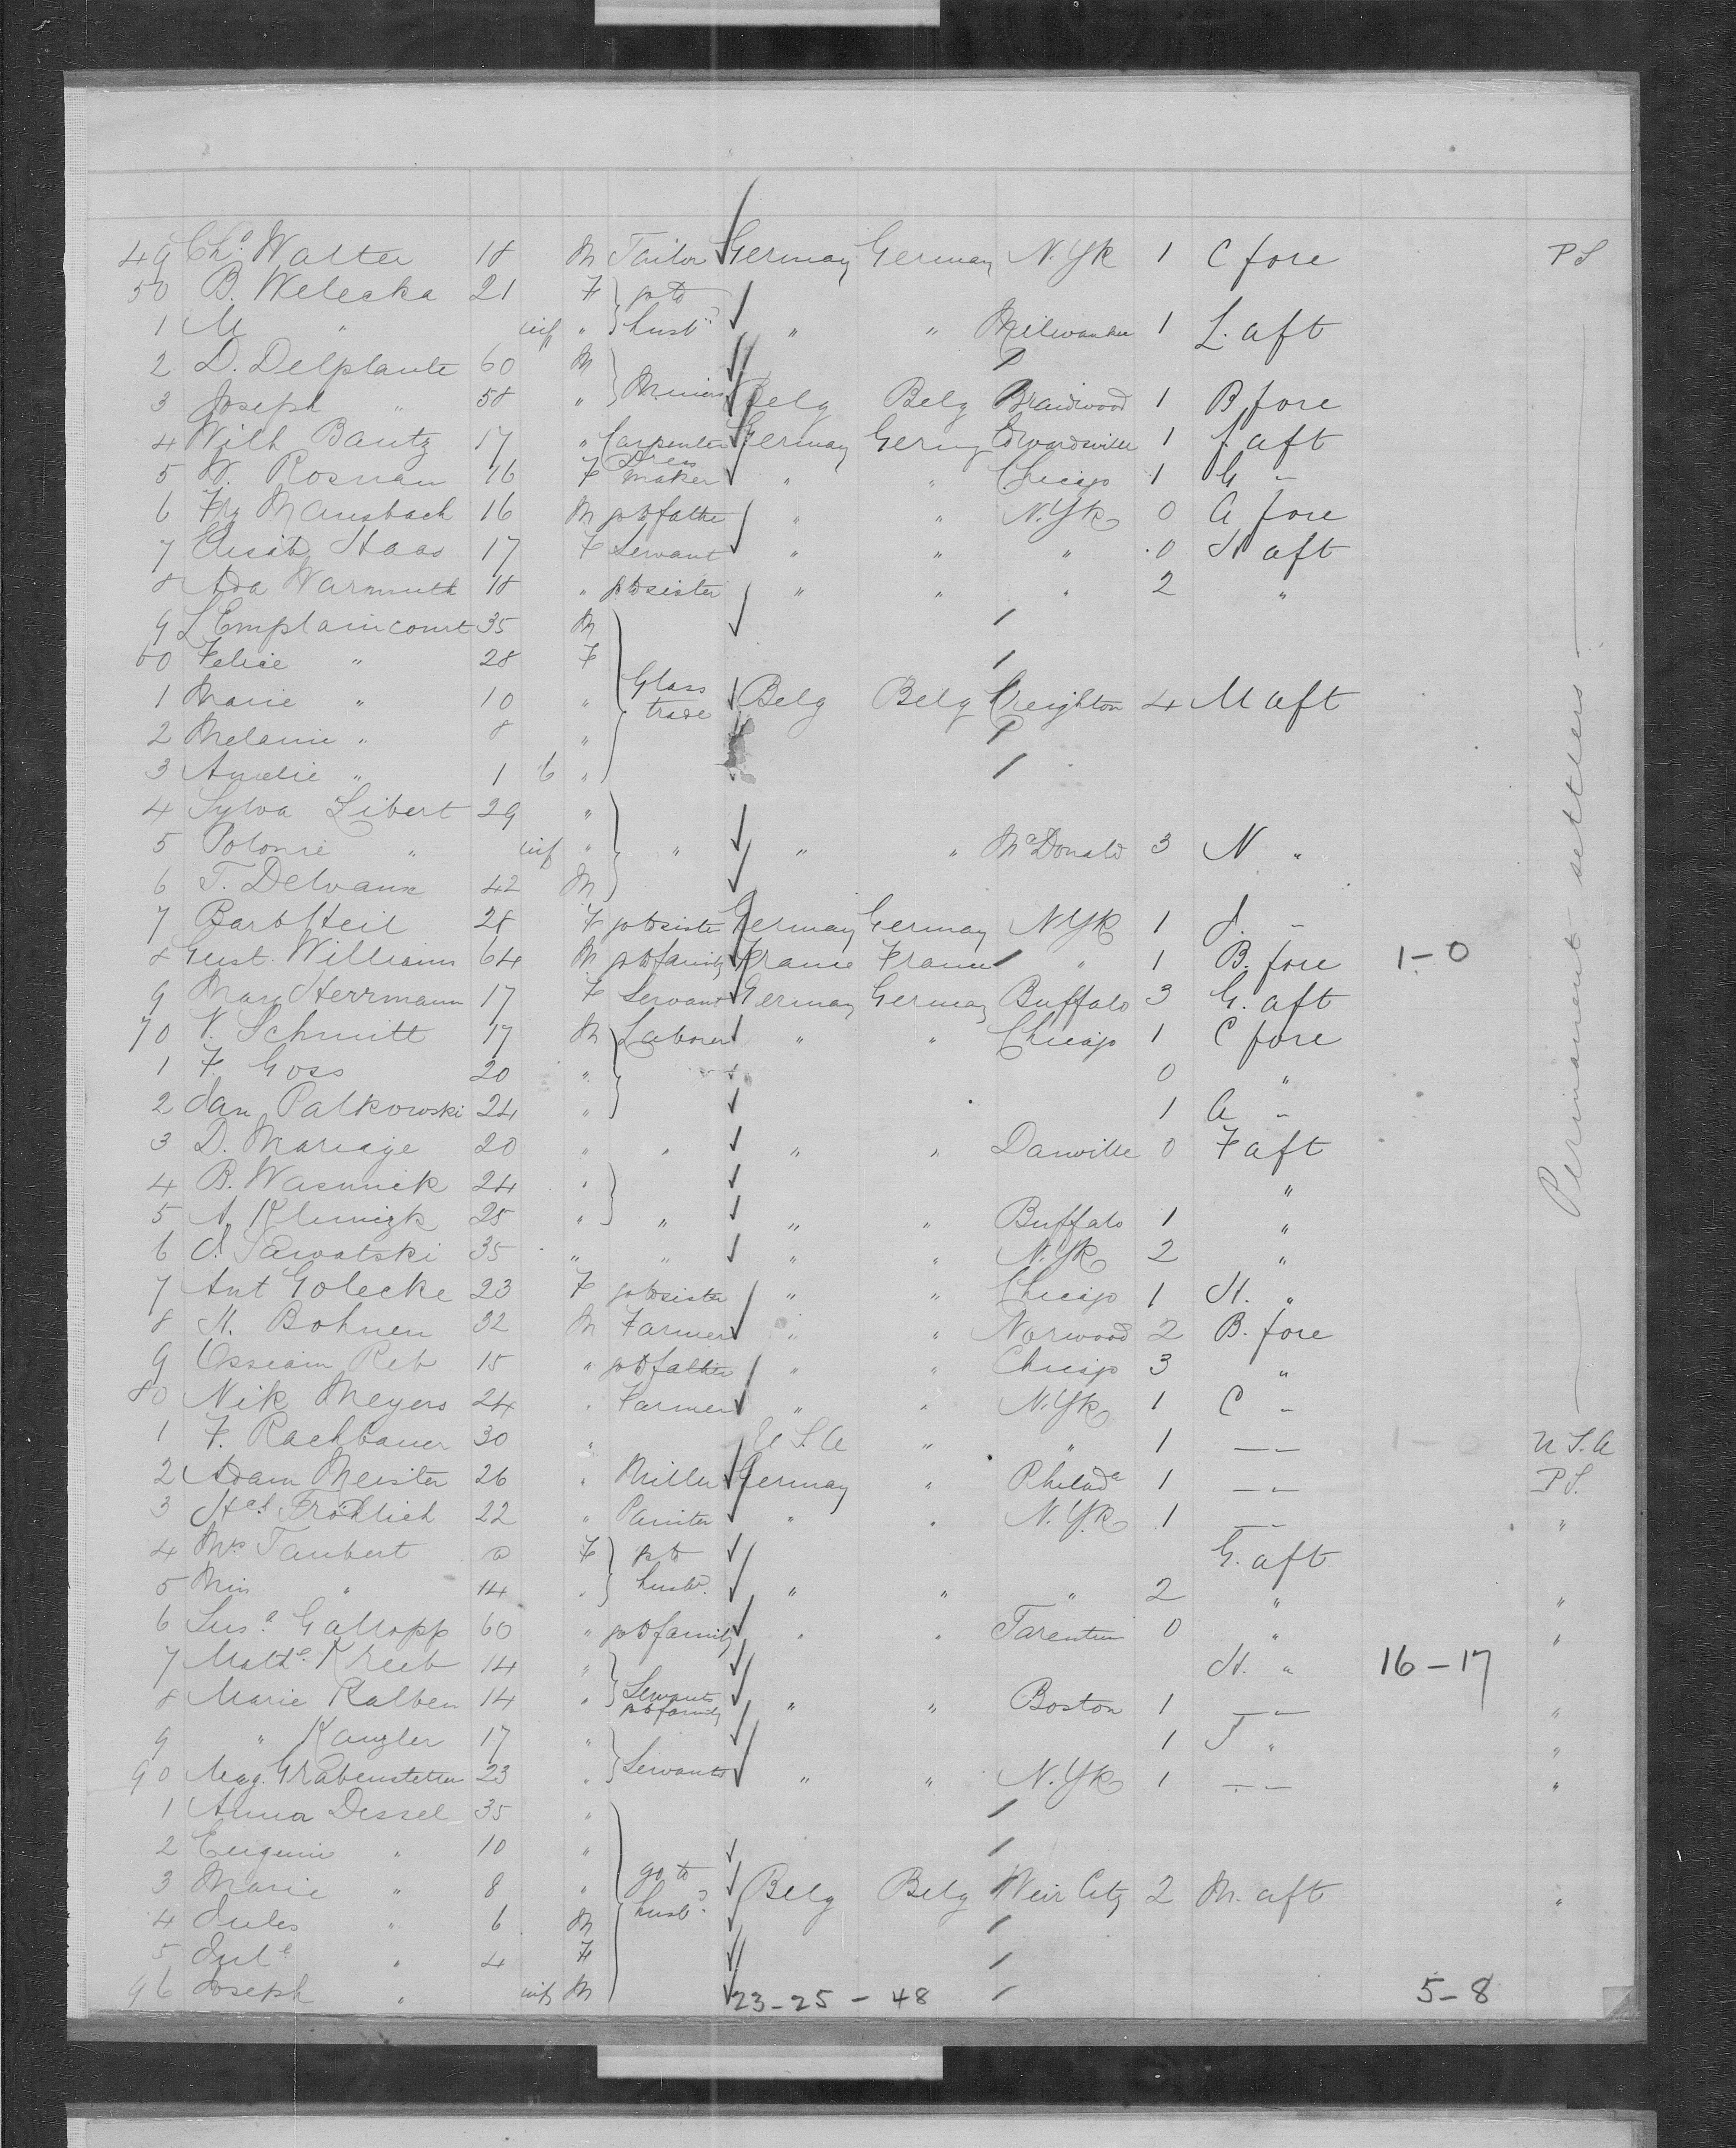 49 Chs Walter 18 M Tailor Germany Germany N.Yk 1 C fore P S
50 B. Welecka 21 F go to
1 M " inf " husbd " " Milwaukee 1 L. aft
2 D. Delplante 60 M
3 Joseph " 58 " Miners Belg Belg Braidwood 1 B fore
4 Wilh Bautz 17 " Carpenter Germany Germy Edwardsville 1 J. aft
5 W. Rosnau 16 F Dress maker " " Chicago 1 G "
6 Frz Mansbach 16 M go to father " " N.Yk 0 A fore
7 Elisab Haas 17 F Servant " " " 0 H aft
8 Ada Warmuth 18 " go to sister " " " 2 "
9 L Emplaincourt 35 M
60 Felicie " 28 F
1 Marie " 10 " Glass trade Belg Belg Creighton 4 M aft
2 Melanie " 8 "
3 Amelie " 1 6 "
4 Sylva Libert 29 "
5 Polonie " inf " " " " McDonald 3 N "
6 T. Delvaux 42 M
7 Barb Heil 28 F go to sister Germany Germany N.Yk 1 J. "
8 Gust. Williams 64 M go to family France France " 1 B. fore 1-0
9 Mary Herrmann 17 F Servant Germany Germany Buffalo 3 G. aft
70 V. Schmitt 17 M Laborer " " Chicago 1 C fore
1 F. Goss 20 " 0 "
2 Jan Palkowski 24 " 1 A "
3 D. Mariage 20 " " " " Danville 0 F aft
4 B. Wasnnick 24 " "
5 A. Klimizk 25 " " " " Buffalo 1 "
6 J. Sawatski 35 " " " " N.Yk 2 "
7 Ant Golecke 23 F go to sister " " Chicago 1 H. "
8 H. Bohnen 32 M Farmer " " Norwood 2 B. fore
9 Reb 15 " go to father " " Chicago 3 "
80 Nik Meyers 24 " Farmer " " N.Yk 1 C "
1 F. Rachbauer 30 " U S. A " " 1 — " — 1-0 U S. A
2 Adam Meister 26 " Miller Germany " Philada 1 — " — P S.
3 Frödlich 22 " Painter " " N.Yk 1 — " — "
4 Mrs Taubert F go to G. aft
5 Min " 14 " husbd. " " " 2 " "
6 Susa Gallopp 60 " go to family " " Tarentum 0 " "
7 Mathe Kreeb 14 " H. " 16-17
8 Marie Kalben 14 " Servants go to family " " Boston 1 — " — "
9 " Kanzler 17 " 1 J " "
90 Mag. Grabenstetter 23 " Servants " " N.Yk 1 — " — "
1 Anna Dessel 35 "
2 Eugenie " 10 "
3 Marie " 8 " go to Belg Belg Weir City 2 M. aft "
4 Jules " 6 M husbd.
5 Jule " 4 F
96 Joseph " inf M 23-25-48 5-8
Permanent settlers